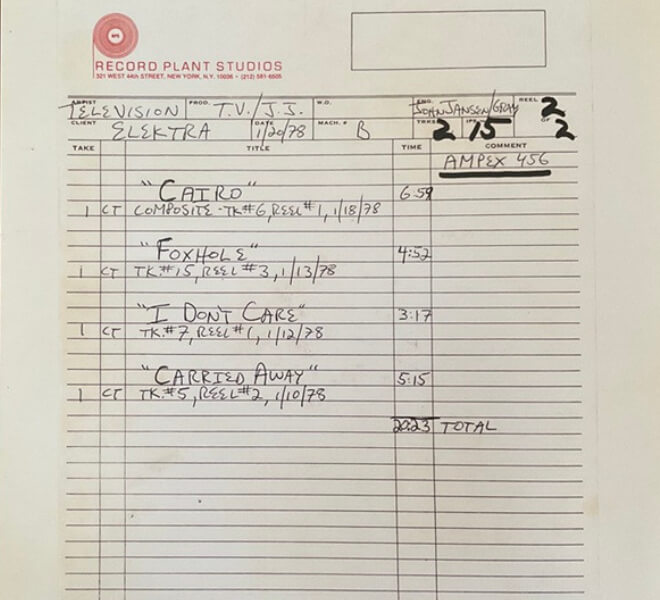 RECORD PLANT STUDIOS
321 WEST 44th STREET, NEW YORK, N.Y. 10036 - (212) 581-6505
ARTIST TELEVISION PROD. T.V./J.J. W.O. ENG. JOHN JANSEN/GRAY REEL 2
CLIENT ELEKTRA DATE 1/20/78 MACH. # B TRKS 2 IPS 15 OF 2
TAKE TITLE TIME COMMENT
AMPEX 456
"CAIRO" 6:59
1 CT COMPOSITE - TK#6, REEL #1, 1/18/78
"FOXHOLE" 4:52
1 CT TK.#15, REEL #3, 1/13/78
"I DON'T CARE" 3:17
1 CT TK.#7, REEL #1, 1/12/78
"CARRIED AWAY" 5:15
1 CT TK.#5, REEL #2, 1/10/78
20:23 TOTAL